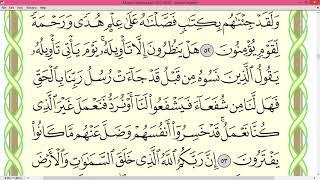 وَلَقَدْ جِئْنَٰهُم بِكِتَٰبٍ فَصَّلْنَٰهُ عَلَىٰ عِلْمٍ هُدًى وَرَحْمَةً
لِّقَوْمٍ يُؤْمِنُونَ ٥٢ هَلْ يَنظُرُونَ إِلَّا تَأْوِيلَهُۥ يَوْمَ يَأْتِى تَأْوِيلُهُۥ
يَقُولُ ٱلَّذِينَ نَسُوهُ مِن قَبْلُ قَدْ جَآءَتْ رُسُلُ رَبِّنَا بِٱلْحَقِّ
فَهَل لَّنَا مِن شُفَعَآءَ فَيَشْفَعُوا۟ لَنَآ أَوْ نُرَدُّ فَنَعْمَلَ غَيْرَ ٱلَّذِى
كُنَّا نَعْمَلُ قَدْ خَسِرُوٓا۟ أَنفُسَهُمْ وَضَلَّ عَنْهُم مَّا كَانُوا۟
يَفْتَرُونَ ٥٣ إِنَّ رَبَّكُمُ ٱللَّهُ ٱلَّذِى خَلَقَ ٱلسَّمَٰوَٰتِ وَٱلْأَرْضَ